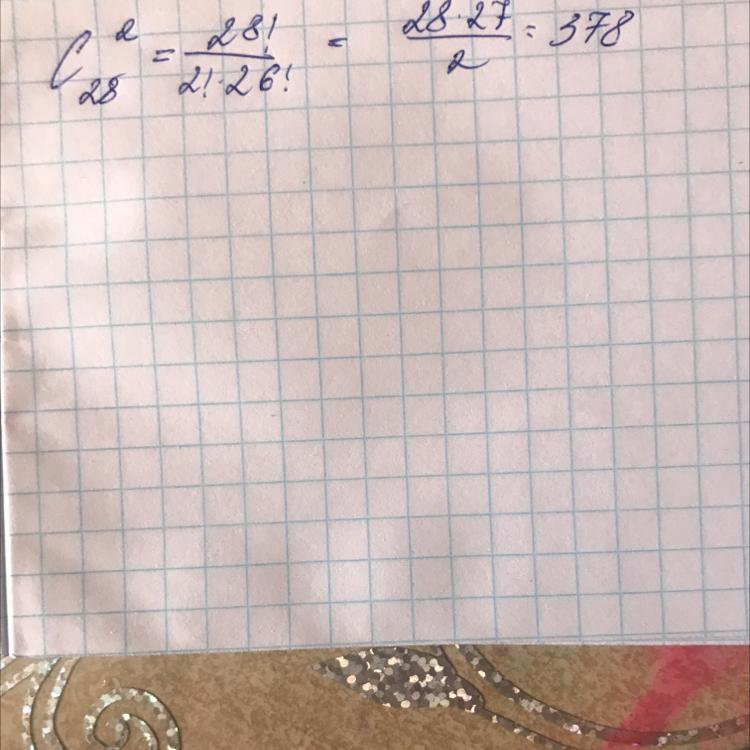 C²₂₈ = 28!/(2!·26!) = 28·27/2 = 378